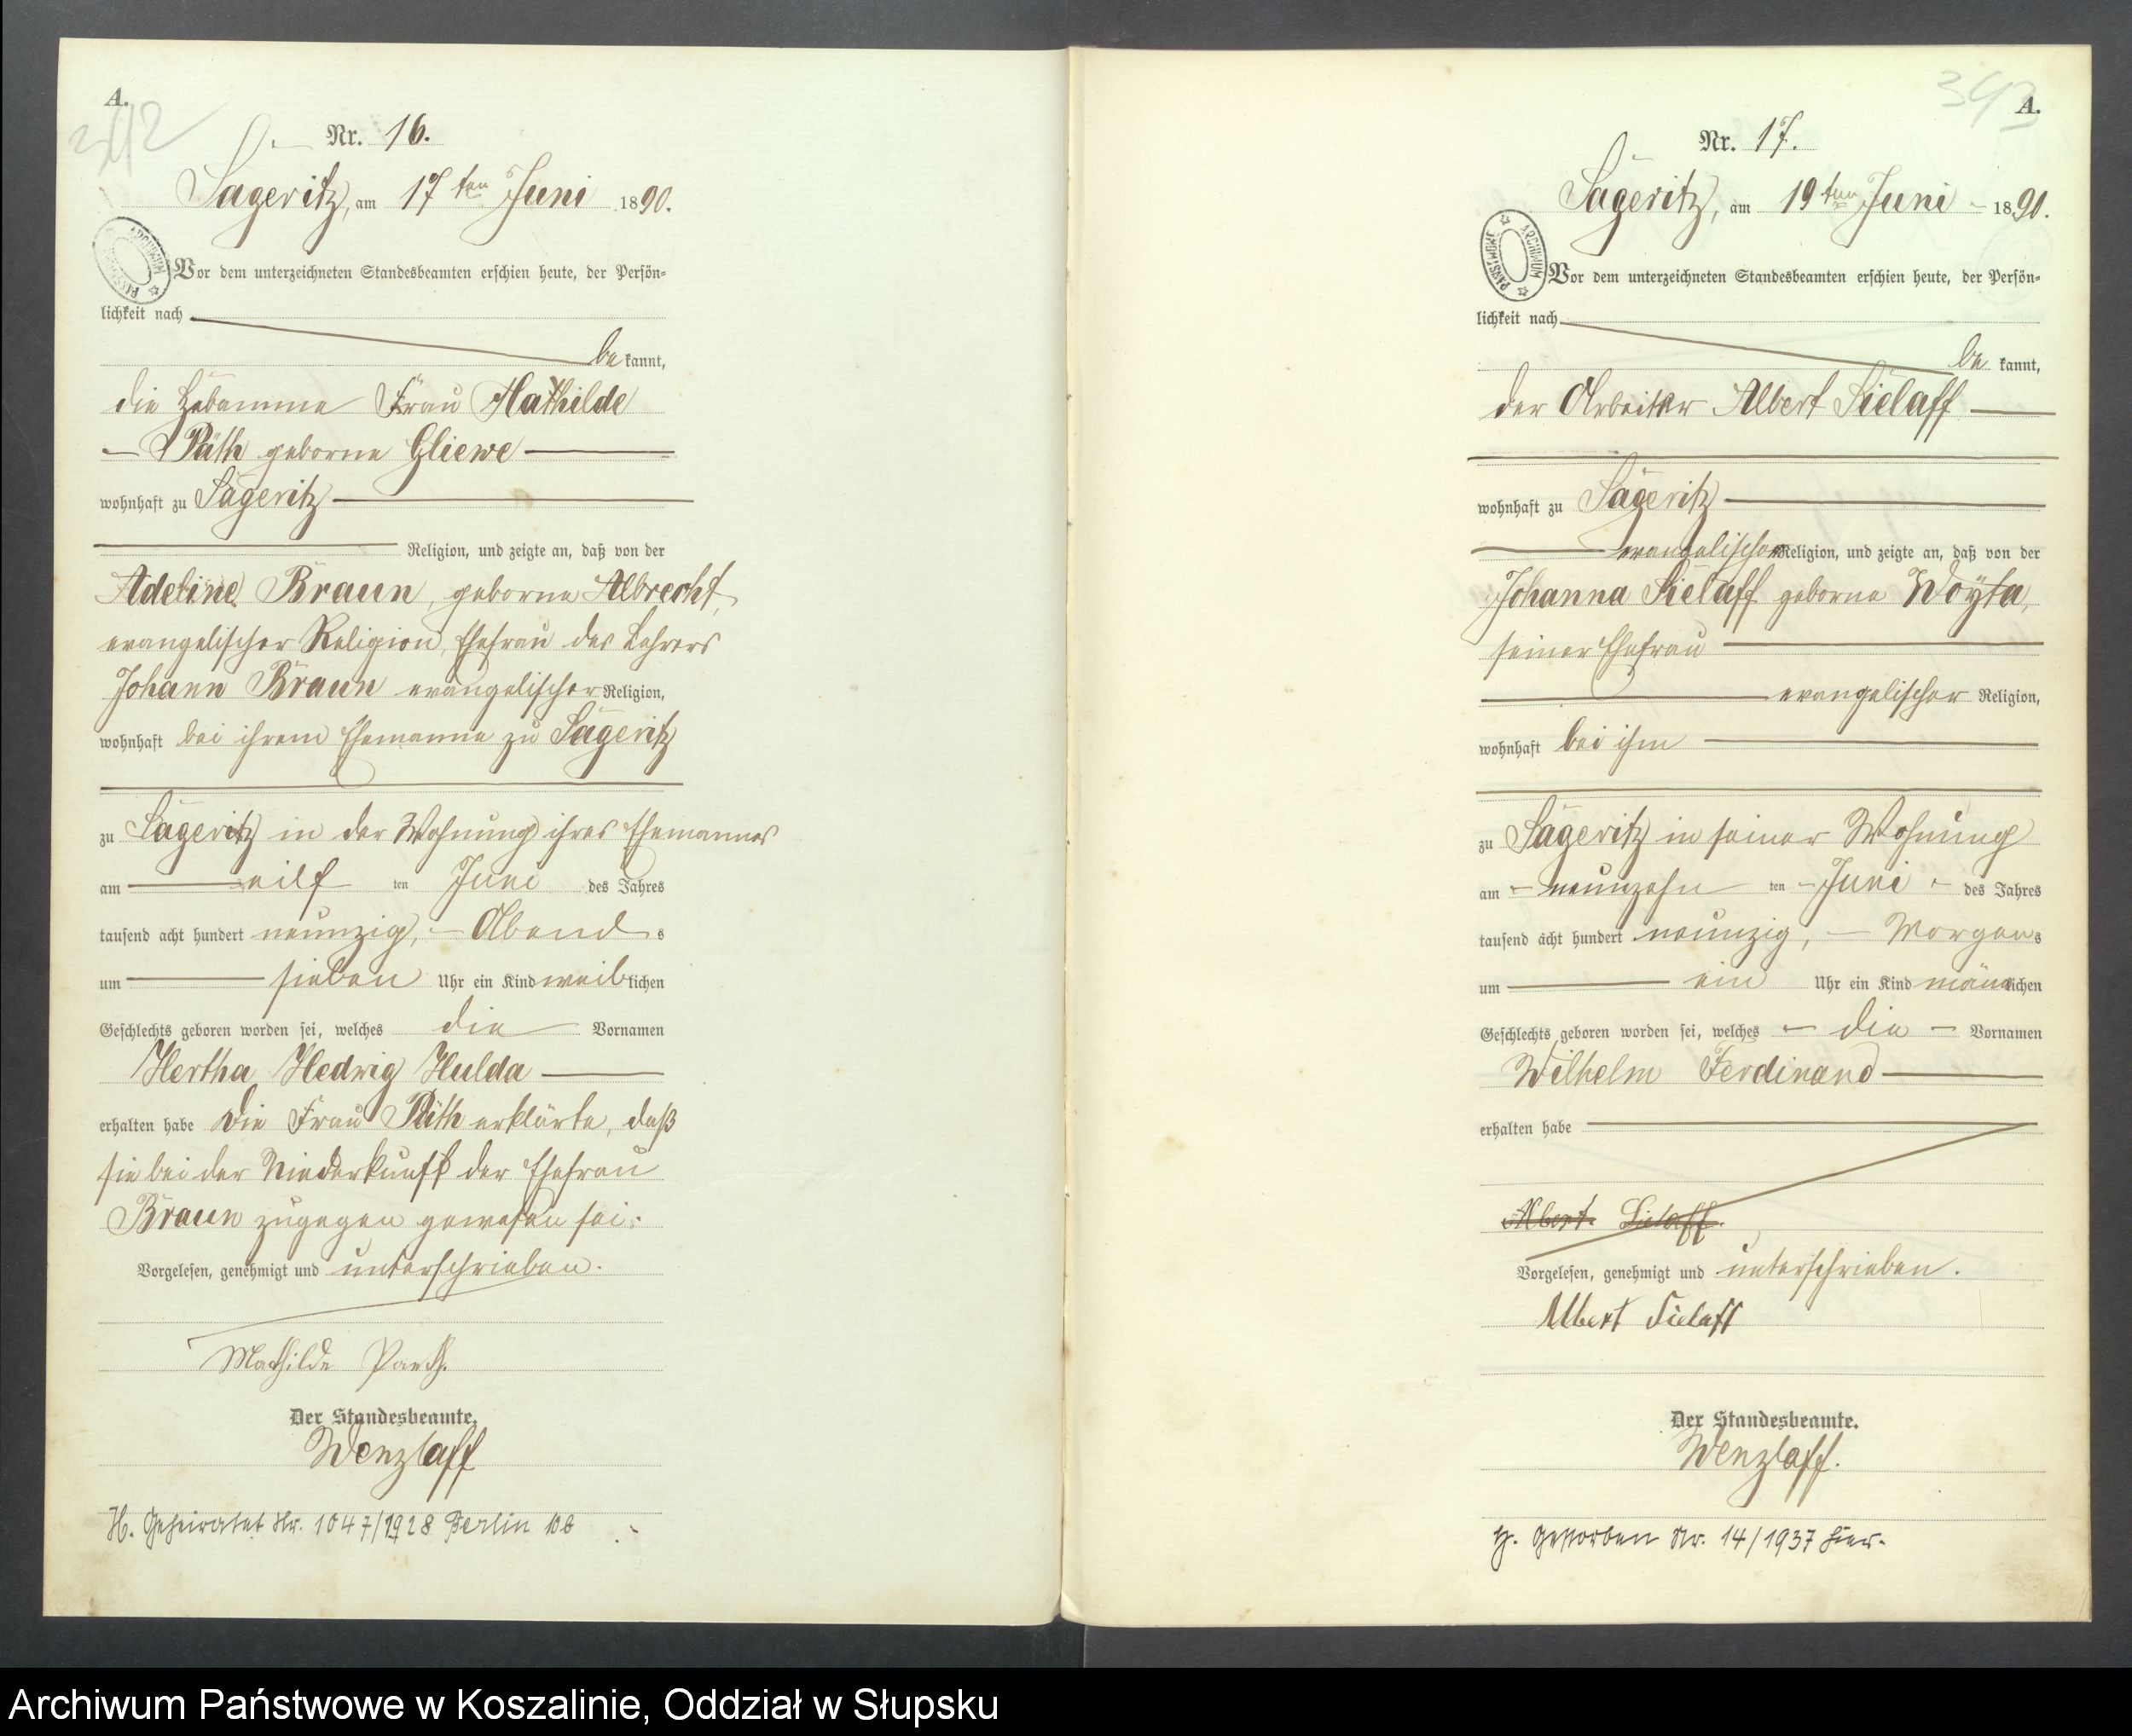 A.
342
Nr. 16.
Sageritz, am 17ten Juni 1890.
Vor dem unterzeichneten Standesbeamten erschien heute, der Persön-
lichkeit nach
be kannt,
die Hebamme Frau Mathilde
Päth geborne Gliewe
wohnhaft zu Sageritz
Religion, und zeigte an, daß von der
Adeline Braun, geborne Albrecht,
evangelischer Religion, Ehefrau des Lehrers
Johann Braun evangelischer Religion,
wohnhaft bei ihrem Ehemanne zu Sageritz
zu Sageritz in der Wohnung ihres Ehemannes
am eilf ten Juni des Jahres
tausend acht hundert neunzig, Abend s
um sieben Uhr ein Kind weib lichen
Geschlechts geboren worden sei, welches die Vornamen
Hertha Hedwig Hulda
erhalten habe Die Frau Päth erklärte, daß
sie bei der Niederkunft der Ehefrau
Braun zugegen gewesen sei.
Vorgelesen, genehmigt und unterschrieben.
Mathilde Paeth.
Der Standesbeamte.
Wenzlaff
H. Geheiratet Nr. 1047/1928 Berlin
343
A.
Nr. 17.
Sageritz, am 19ten Juni 1890.
PAŃSTWOWE ARCHIWUM
Vor dem unterzeichneten Standesbeamten erschien heute, der Persön-
lichkeit nach
be kannt,
der Arbeiter Albert Sielaff
wohnhaft zu Sageritz
evangelischer Religion, und zeigte an, daß von der
Johanna Sielaff geborne Woyta,
seiner Ehefrau
evangelischer Religion,
wohnhaft bei ihm
zu Sageritz in seiner Wohnung
am neunzehn ten Juni des Jahres
tausend acht hundert neunzig, Morgen s
um ein Uhr ein Kind männ lichen
Geschlechts geboren worden sei, welches die Vornamen
Wilhelm Ferdinand
erhalten habe
Albert Sielaff.
Vorgelesen, genehmigt und unterschrieben.
Albert Sielaff
Der Standesbeamte.
Wenzlaff.
H. Gestorben Nr. 14/1937 hier.
Archiwum Państwowe w Koszalinie, Oddział w Słupsku